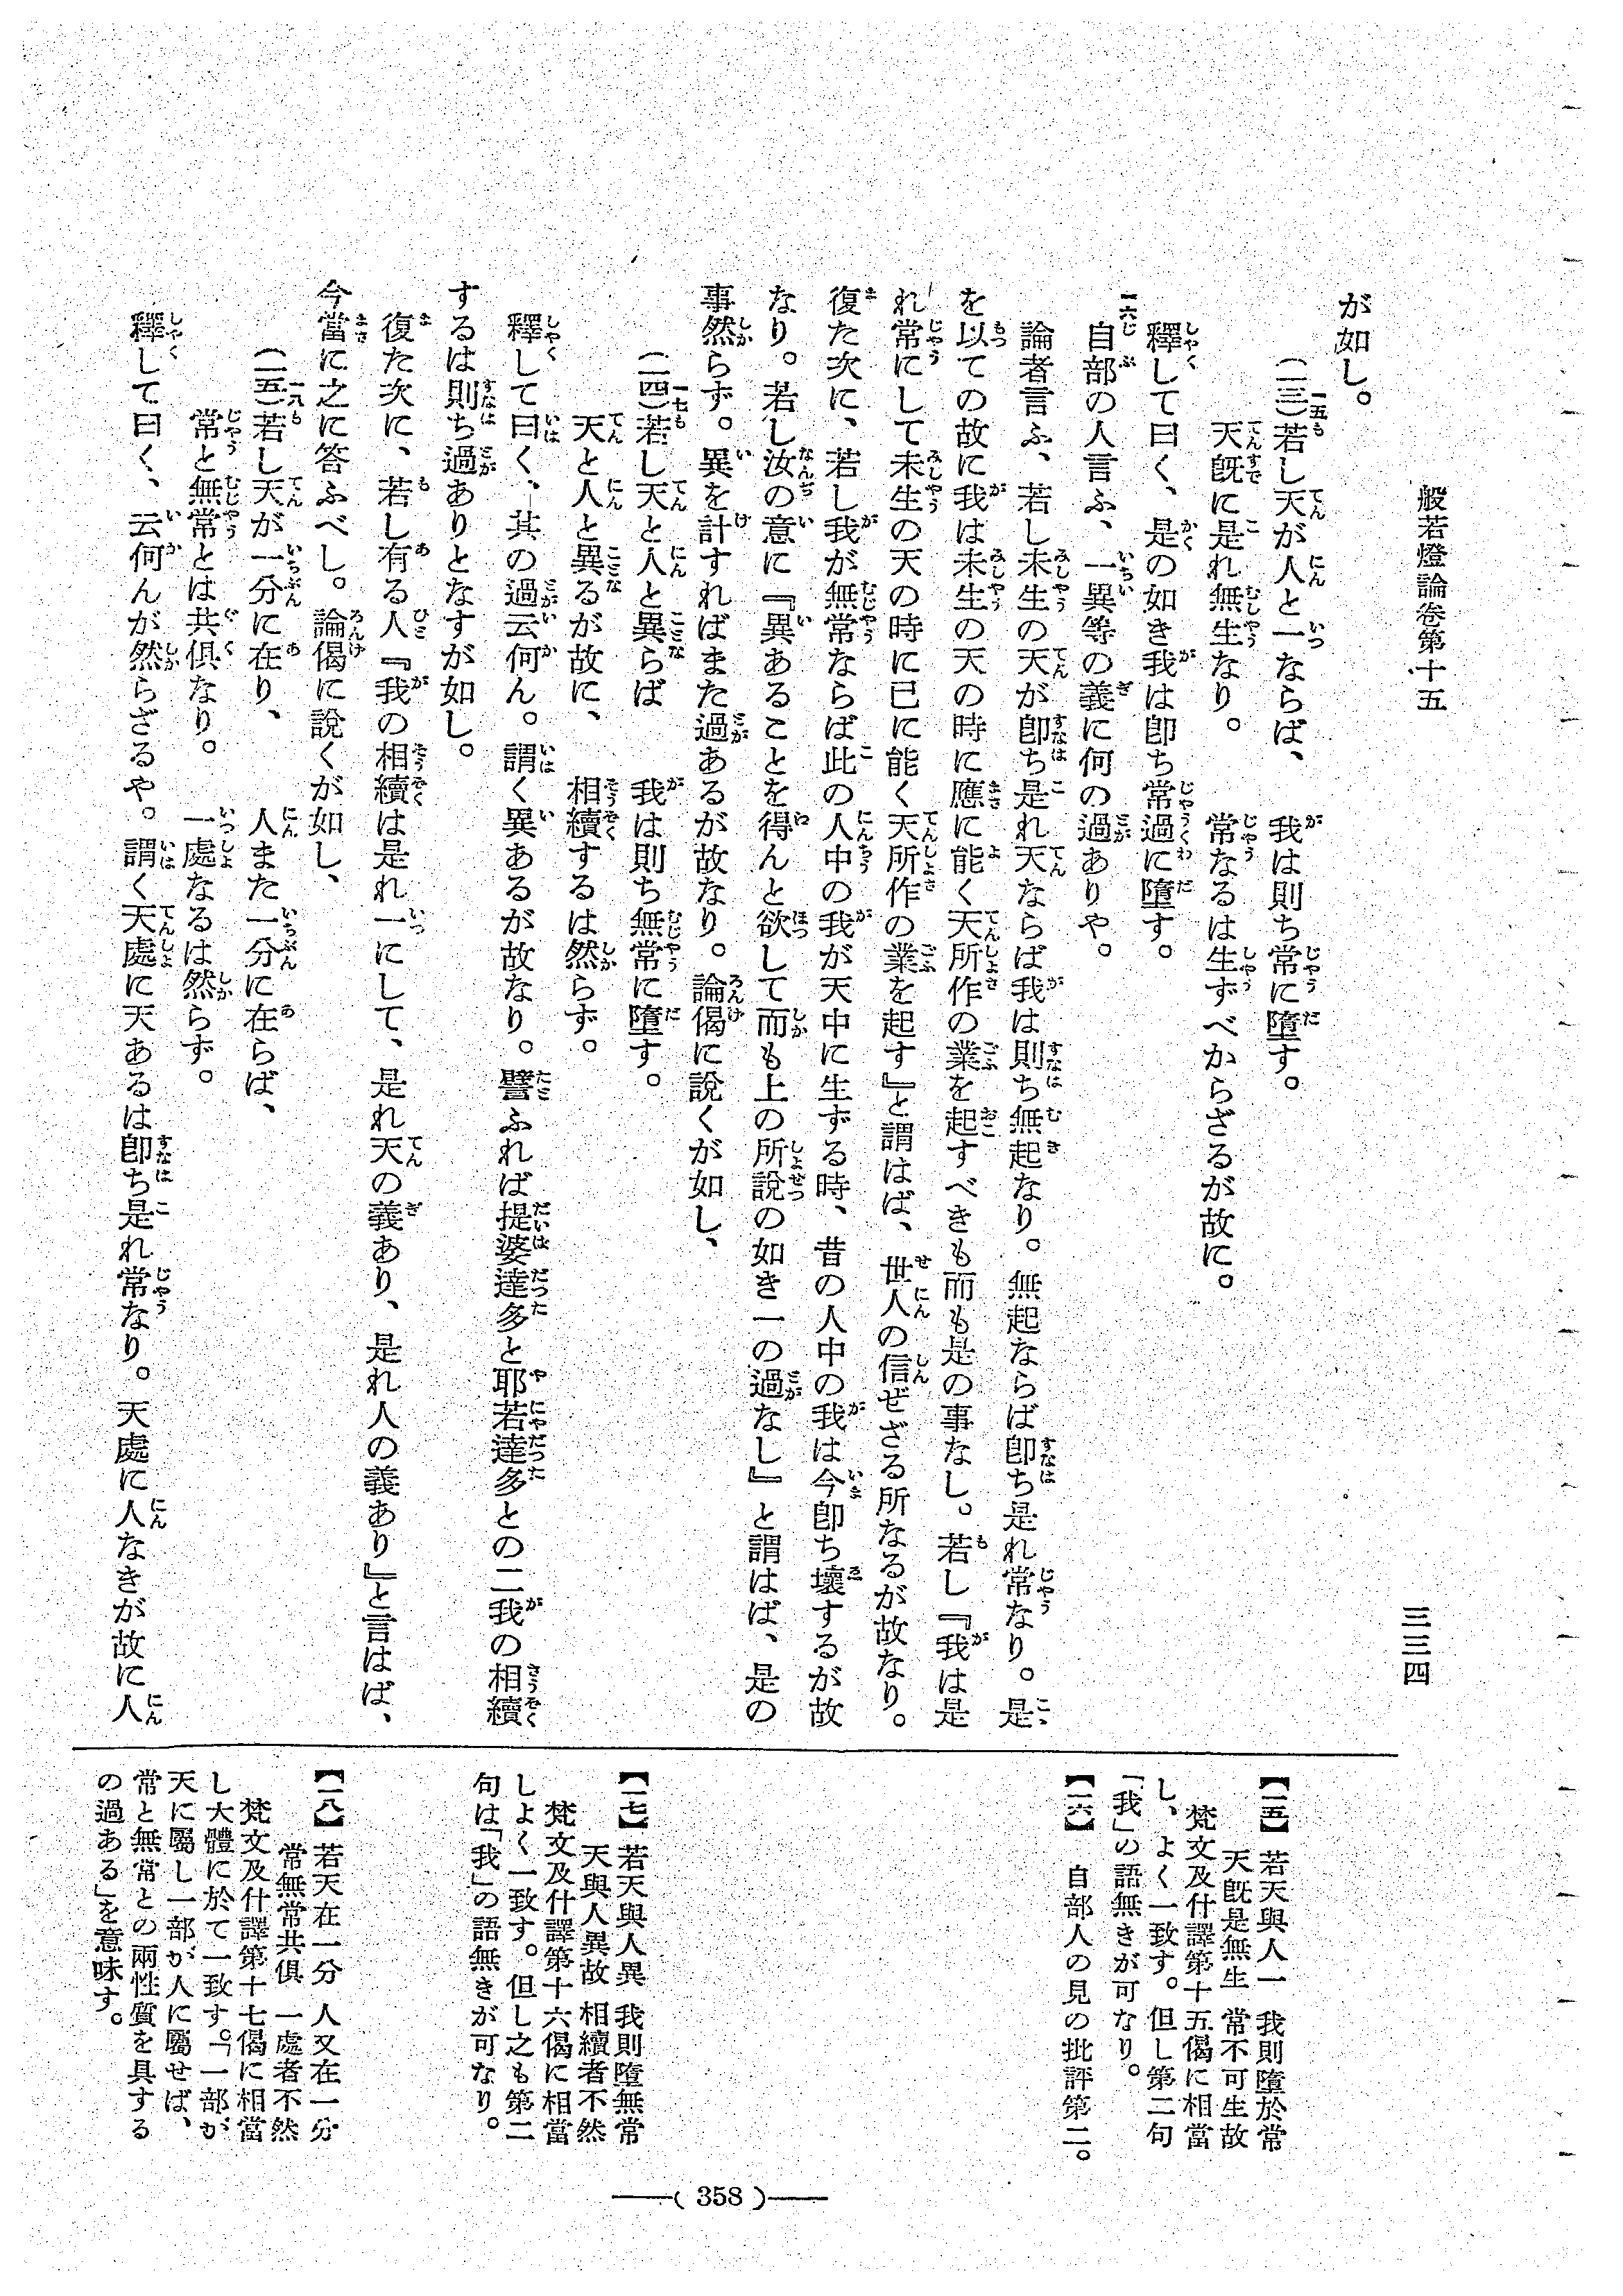 般若燈論卷第十五
三三四
が如し。
(一三)一五若し天が人と一ならば、 我は則ち常に墮す。
天既に是れ無生なり。 常なるは生ずべからざるが故に。
釋して曰く、是の如き我は卽ち常過に墮す。
一六自部の人言ふ、一異等の義に何の過ありや。
論者言ふ、若し未生の天が卽ち是れ天ならば我は則ち無起なり。無起ならば卽ち是れ常なり。是
を以ての故に我は未生の天の時に應に能く天所作の業を起すべきも而も是の事なし。若し『我は是
れ常にして未生の天の時に已に能く天所作の業を起す』と謂はば、世人の信ぜざる所なるが故なり。
復た次に、若し我が無常ならば此の人中の我が天中に生ずる時、昔の人中の我は今卽ち壞するが故
なり。若し汝の意に『異あることを得んと欲して而も上の所說の如き一の過なし』と謂はば、是の
事然らず。異を計すればまた過あるが故なり。論偈に說くが如し、
(一四)一七若し天と人と異らば 我は則ち無常に墮す。
天と人と異るが故に、 相續するは然らず。
釋して曰く、其の過云何ん。謂く異あるが故なり。譬ふれば提婆達多と耶若達多との二我の相續
するは則ち過ありとなすが如し。
復た次に、若し有る人『我の相續は是れ一にして、是れ天の義あり、是れ人の義あり』と言はば、
今當に之に答ふべし。論偈に說くが如し、
(一五)一八若し天が一分に在り、 人また一分に在らば、
常と無常とは共俱なり。 一處なるは然らず。
釋して曰く、云何んが然らざるや。謂く天處に天あるは卽ち是れ常なり。天處に人なきが故に人
【一五】 若天與人一 我則墮於常
天既是無生 常不可生故
梵文及什譯第十五偈に相當
し、よく一致す。但し第二句
「我」の語無きが可なり。
【一六】 自部人の見の批評第二。
【一七】 若天與人異 我則墮無常
天與人異故 相續者不然
梵文及什譯第十六偈に相當
しよく一致す。但し之も第二
句は「我」の語無きが可なり。
【一八】 若天在一分 人又在一分
常無常共俱 一處者不然
梵文及什譯第十七偈に相當
し大體に於て一致す。「一部が
天に屬し一部が人に屬せば、
常と無常との兩性質を具する
の過ある」を意味す。
——( 358 )——